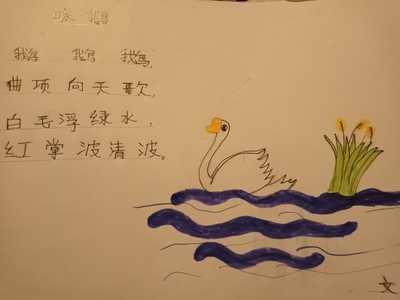 咏 鹅
鹅 鹅 鹅,
曲项向天歌,
白毛浮绿水,
红掌波清波。
文